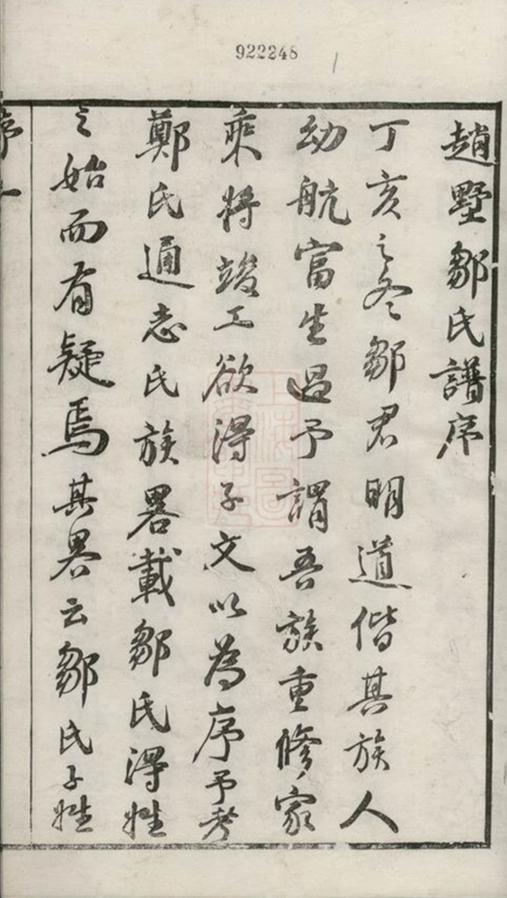 922248
趙墅鄒氏譜序
丁亥之冬鄒君明道偕其族人
幼航富生過予謂吾族重修家
乘將竣工欲得子文以為序予考
鄭氏通志氏族畧載鄒氏得姓
之始而有疑焉其畧云鄒氏子姓
序一